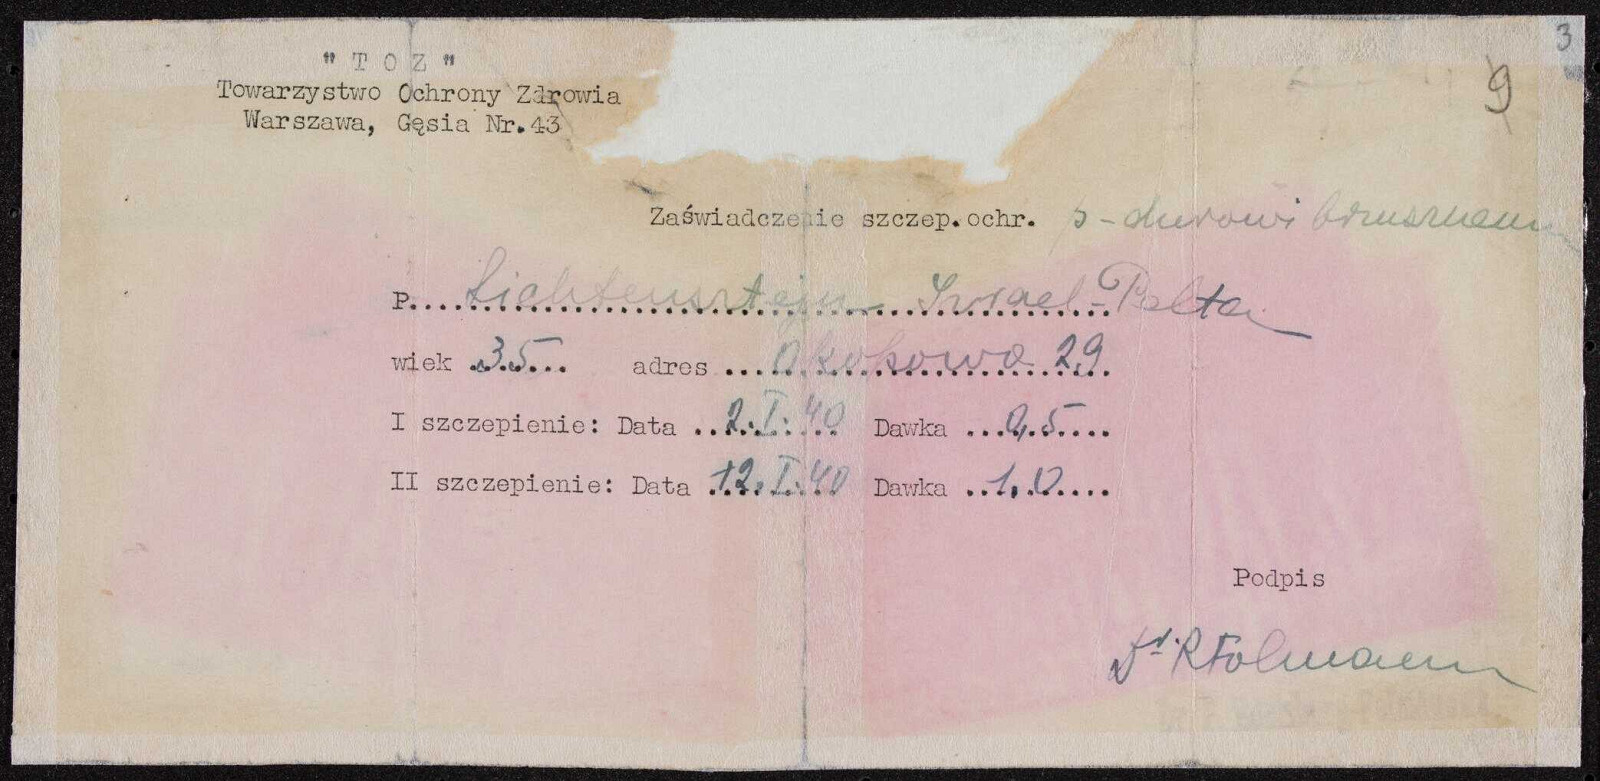 3
9
"TOZ"
Towarzystwo Ochrony Zdrowia
Warszawa, Gęsia Nr.43
Zaświadczenie szczep.ochr. p-durowi brzusznemu
P....Lichtensztejn Israel-Pelta
wiek .35... adres ...Okopowa 29
I szczepienie: Data ..2.I.40 Dawka ...0,5....
II szczepienie: Data .12.I.40 Dawka ..1,0....
Podpis